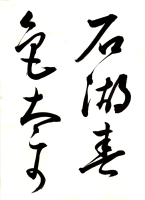 石湖春
色太